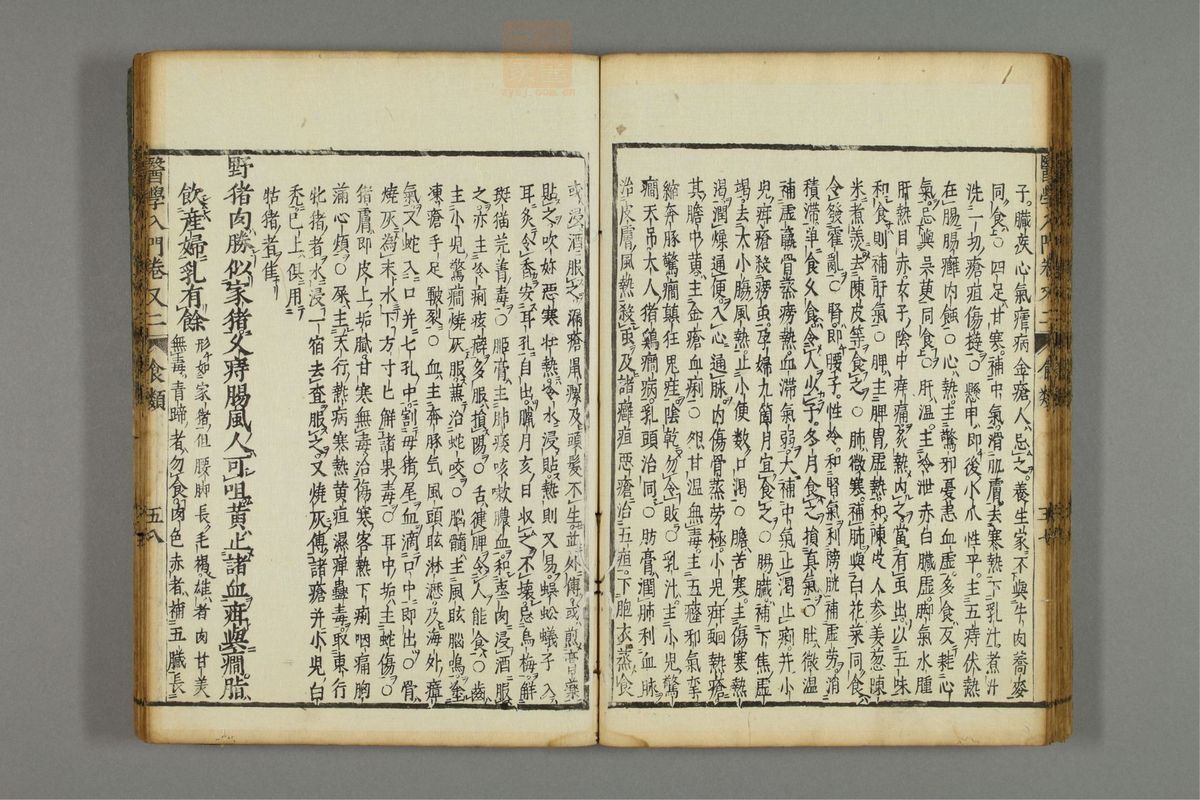 子臟疾心氣癎病金瘡人忌之養生家不與牛肉蕎麥
同食○四足甘寒補中氣滑肌膚去寒熱下乳汁煮汁
洗一切瘡疽傷撻○懸甲即後小爪性平主五痔伏熱
在腸腸癰內蝕○心熱主驚邪憂恚血虛多食反耗心
氣忌與吳茱同食○肝溫主冷泄赤白臟虛脚氣水腫
肝熱目赤女子陰中痒痛炙熱內之當有虫出以五味
和食則補肝氣○脾主脾胃虛熱和陳皮人參羙葱陳
米煮羮去陳皮等食之○肺微寒補肺與白花菜同食
令發霍亂○腎即腰子性冷和腎氣利膀胱補虛勞消
積滯單食久食令人少子冬月食之損真氣○肚微溫
補虛羸骨蒸癆熱血滯氣弱大補中氣止渴止痢并小
兒疳瘡殺癆虫孕婦九箇月宜食之○腸臟補下焦虛
竭去大小腸風熱止小便數口渴○膽苦寒主傷寒熱
渴潤燥通便入心通脉內傷骨蒸勞極小兒疳蛔熱瘡
其膽中黃主金瘡血痢○卵甘溫無毒主五癃邪氣攣
縮奔豚驚癎顛狂鬼疰陰乾勿令敗○乳汁主小兒驚
癎天吊大人猪鷄癎病乳頭治同○肪膏潤肺利血脉
治皮膚風熱殺虫及諸癰疽惡瘡治五疸下胞衣蒸食
或浸酒服之漏瘡鼠瘰及頭髮不生並外傅或煎膏藥
貼之吹妳惡寒壯熱冷水浸貼熱則又易蜈蚣蟻子入
耳炙令香安耳孔自出臘月亥日收之不壞忌烏梅解
斑猫芫青毒○䐈膏主肺痿咳嗽膿血和棗肉浸酒服
之亦主冷痢痃癖多服損陽○舌健脾令人能食○齒
主小兒驚癎燒灰服兼治蛇咬○腦髓主風眩腦鳴塗
凍瘡手足皸裂○血主奔豚氣風頭眩淋瀝及海外瘴
氣又蛇入口并七孔中割母猪尾血滴口中即出○骨
燒灰爲末水下方寸匕解諸果毒○耳中垢主蛇傷○
猪膚即皮上垢膩甘寒無毒治傷寒客熱下痢咽痛胸
滿心煩○屎主天行熱病寒熱黃疸濕痺蠱毒取東行
牝猪者水浸一宿去查服之又燒灰傅諸瘡并小兒白
禿已上俱用
牯猪者隹
野猪肉勝似家猪久痔腸風人可咀黃止諸血疳與癎脂
飲產婦乳有餘 形如家猪但腰脚長毛褐雄者肉甘美
無毒青蹄者勿食肉色赤者補五臟長
醫學入門卷又二 食類 五八